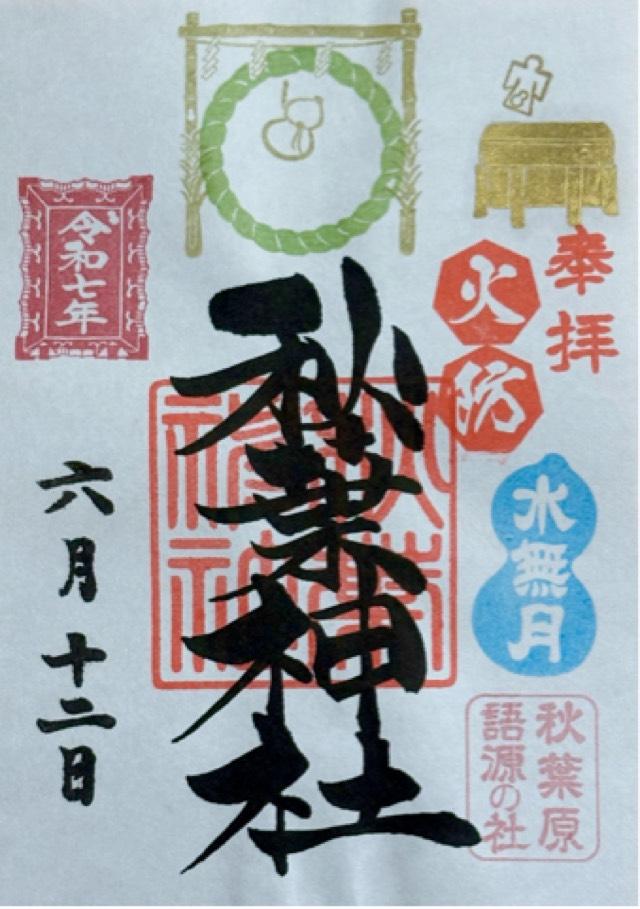 奉拝
火防
水無月
秋葉原
語源の社
秋葉神社
秋葉
神社
令和七年
六月十二日